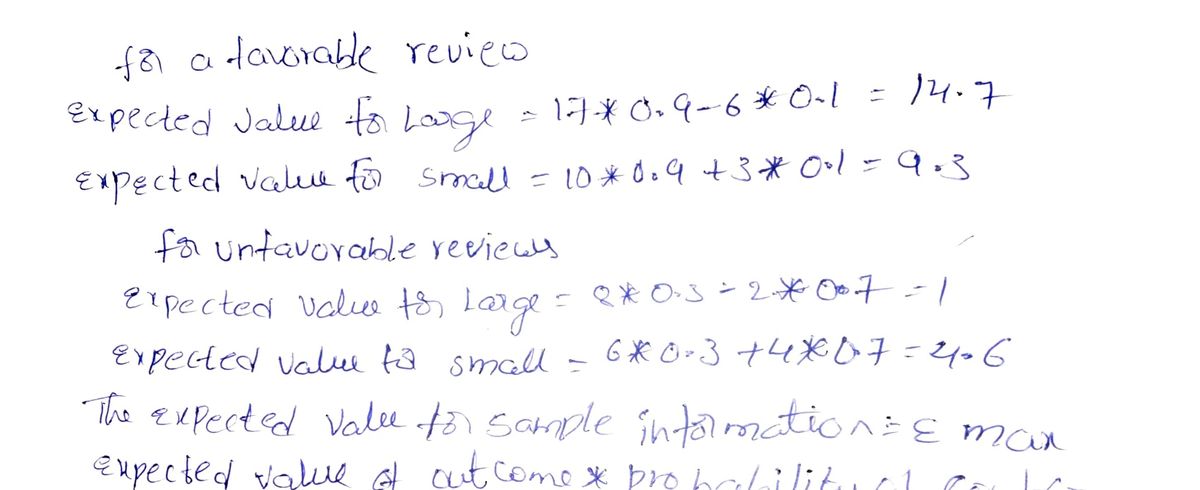 for a favorable review
Expected value for Large = 17 * 0.9 - 6 * 0.1 = 14.7
Expected value for small = 10 * 0.9 + 3 * 0.1 = 9.3
for unfavorable reviews
Expected value for Large = 8 * 0.3 - 2 * 0.7 = 1
Expected value for small = 6 * 0.3 + 4 * 0.7 = 4.6
The expected value for sample information = Σ max
expected value of outcome * probability of